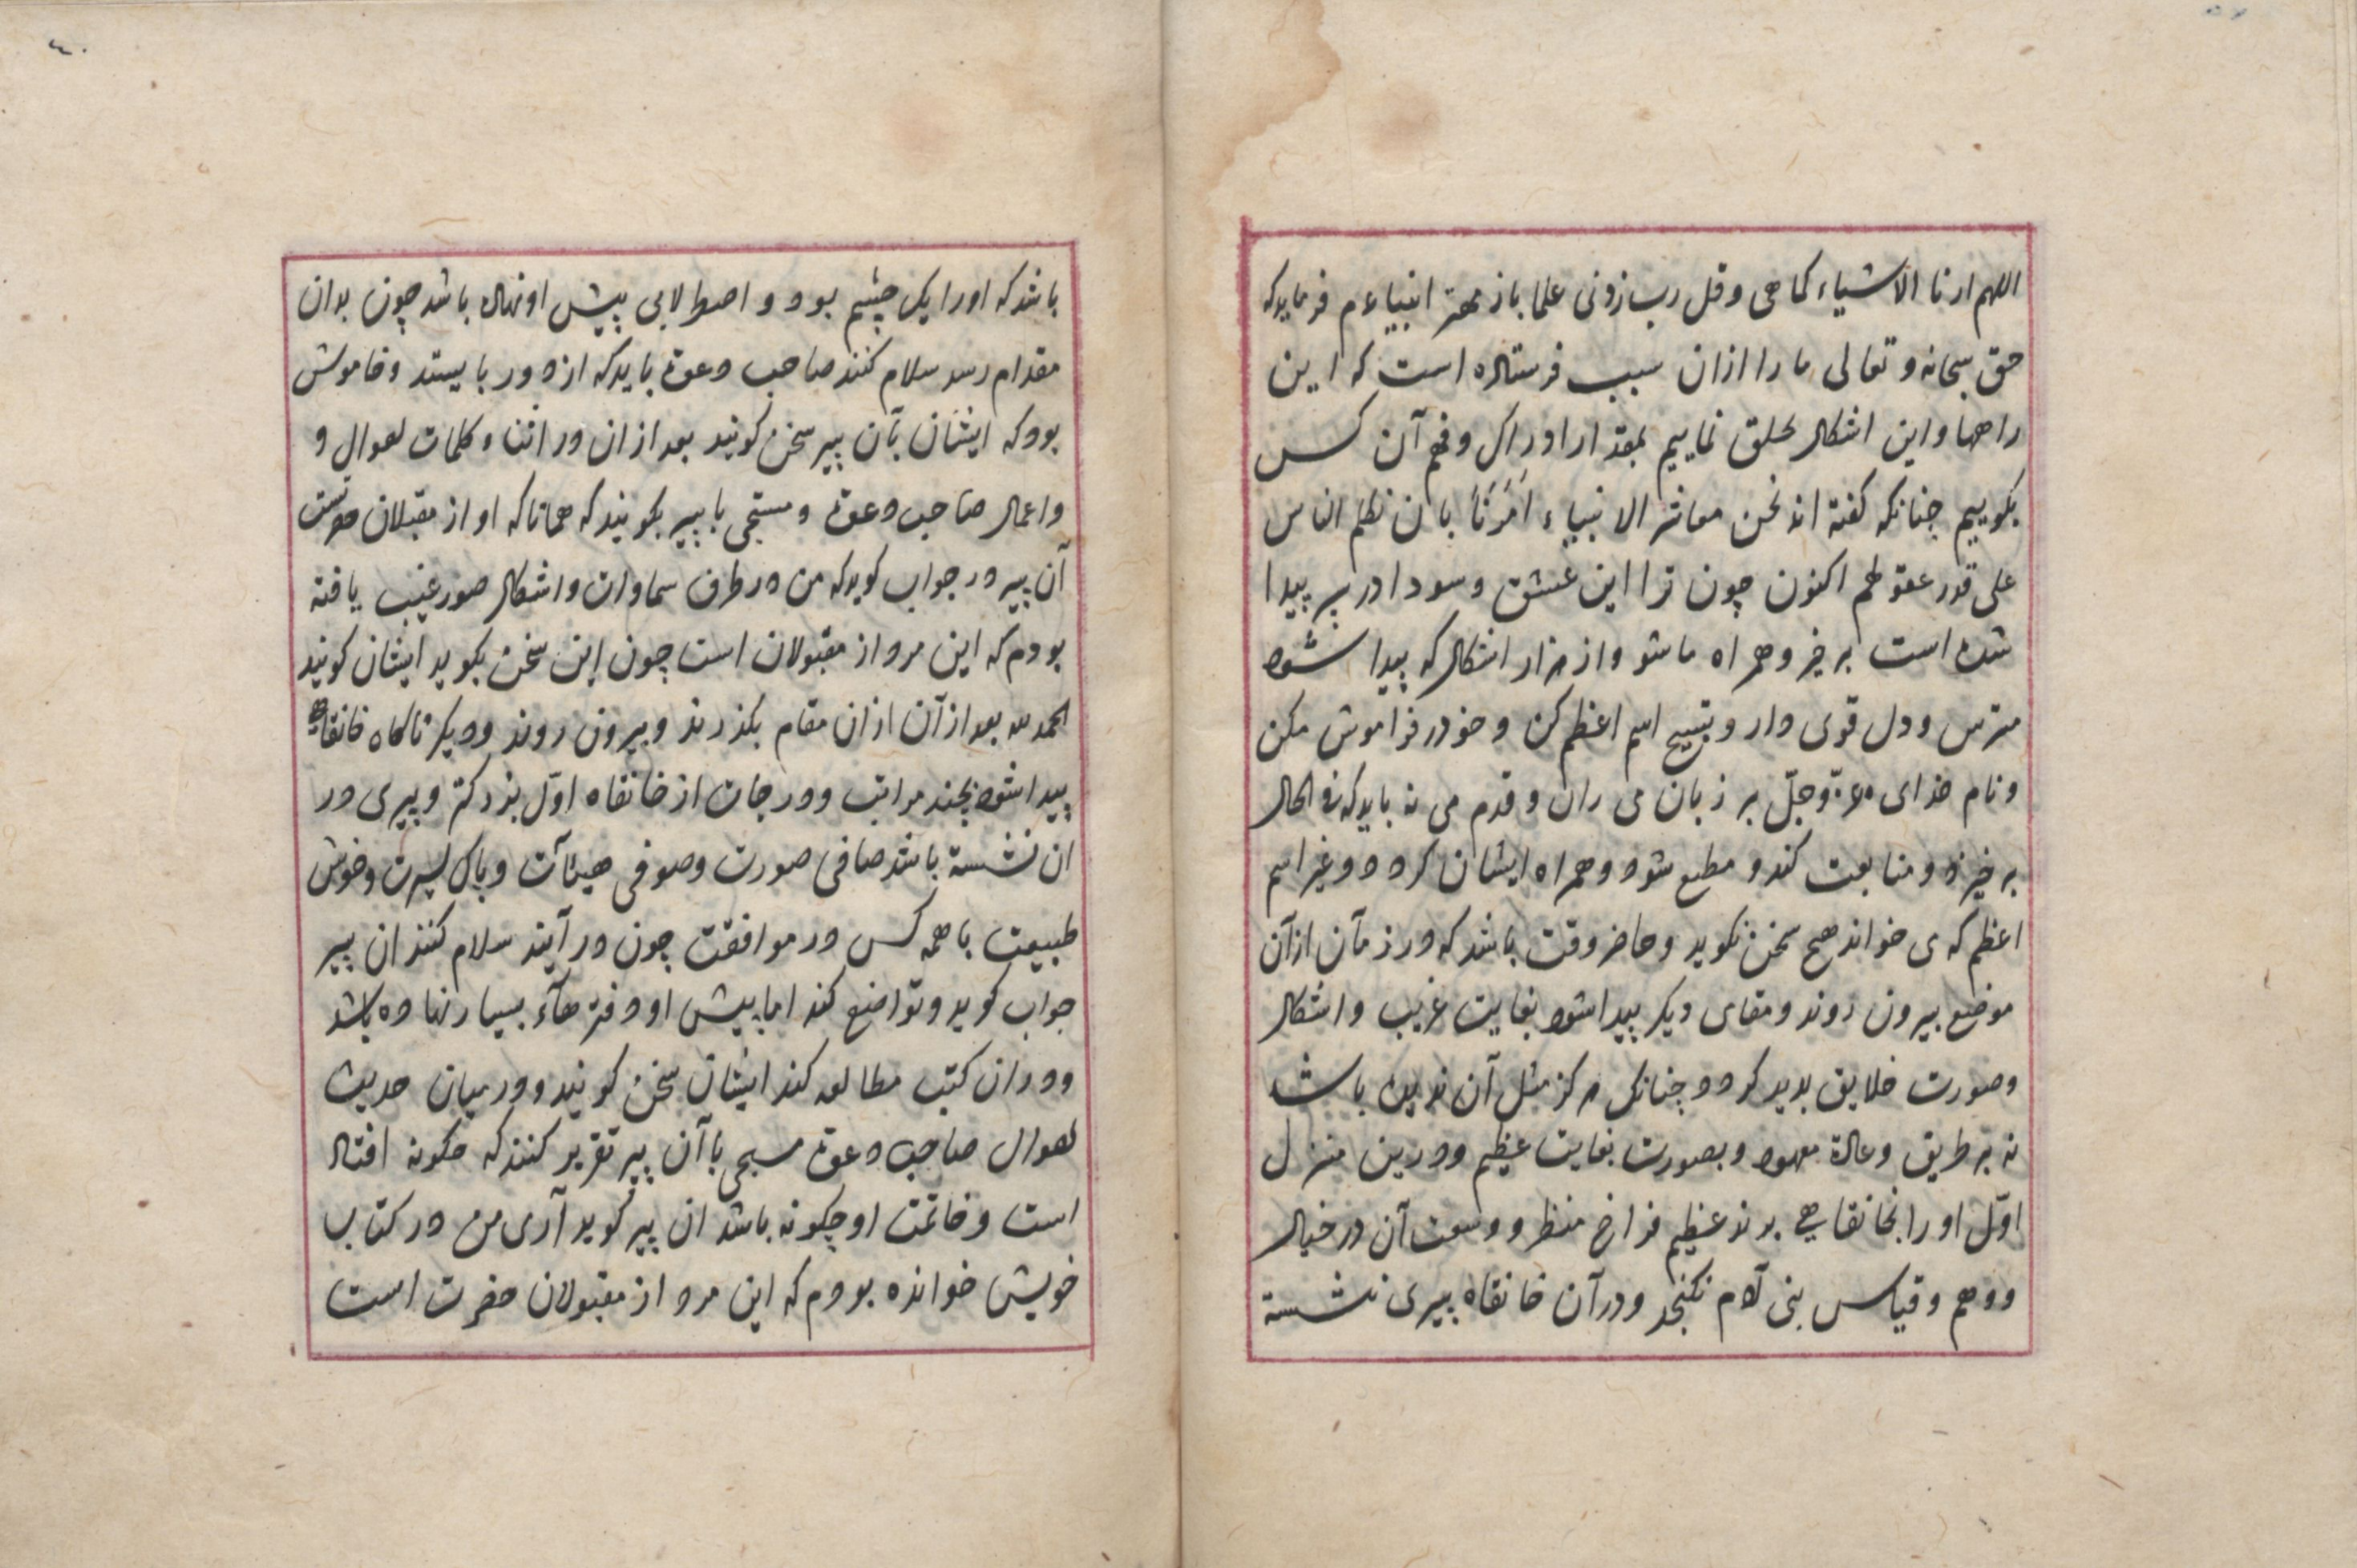 اللهم ارنا الاشیاء کما هی و قل رب زدنی علما باز مهتر انبیاء م فرماید که
حق سبحانه و تعالی ما را ازان سبب فرستاده است که این
راهها و این اشکال بخلق نماییم بمقدار ادراک و فهم آن کس
بکوییم چنانکه کفته اند نحن معاشر الانبیاء اَمَرَنَا بان نکلم الناس
علی قدر عقولهم اکنون چون ترا این عشق و سودا در سر پیدا
شده است برخیز و همراه ما شو و از هزار اشکال که پیدا شود
مترس و دل قوی دار و تسبیح اسم اعظم کن و خود را فراموش مکن
و نام خدای عزّ و جلّ بر زبان می ران و قدم می نه باید که فی الحال
برخیزد و متابعت کند و مطیع شود و همراه ایشان کردد و غیر اسم
اعظم که می خواند هیچ سخن نکوید و حاضر وقت باشد که در زمان ازآن
موضع بیرون روند و مقامی دیکر پیدا شود بغایت غریب و اشکال
و صورت خلایق بدید کردد چنانک هرکز مثل آن ندیده باشد
نه بر طریق و عادة معهود و بصورت بغایت عظیم و درین منزل
اوّل او را بخانقاهی برند عظیم فراخ منظر و وسعت آن در خیال
و وهم و قیاس بنی آدم نکنجد و درآن خانقاه پیری نشسته
٤٠
باشد که او را یک چشم بود و اصطرلابی پیش او نهاده باشد چون بدان
مقدام رسد سلام کنند صاحب دعوة باید که از دور بایستد و خاموش
بود که ایشان بآن پیر سخن کویند بعد ازان در اثناء کلمات احوال و
و اعمال صاحب دعوة و مستجی با پیر بکویند که همانا که او از مقبلان حضرتست
آن پیر در جواب کوید که من در طرف سماوات و اشکال صور غیب یافته
بودم که این مرد از مقبولان است چون این سخن بکوید ایشان کویند
الحمد لله بعد ازآن ازان مقام بکذرند و بیرون روند و دیکر ناکاه خانقاهی
پیدا شود بچند مراتب و درجات از خانقاه اوّل بزرکتر و پیری در
ان نشسته باشد صافی صورت و صوفی هیئآت و پاک سیرت و خوش
طبیعت با همه کس در موافقت چون در آیند سلام کنند ان پیر
جواب کوید و تواضع کند اما پیش او دفترهآء بسیار نهاده باشد
و دران کتب مطالعه کند ایشان سخن کویند و در میان حدیث
احوال صاحب دعوة مسبحی با آن پیر تقریر کنند که چکونه افتاد
است و خاتمت او چکونه باشد ان پیر کوید آری من در کتاب
خویش خوانده بودم که این مرد از مقبولان حضرت است